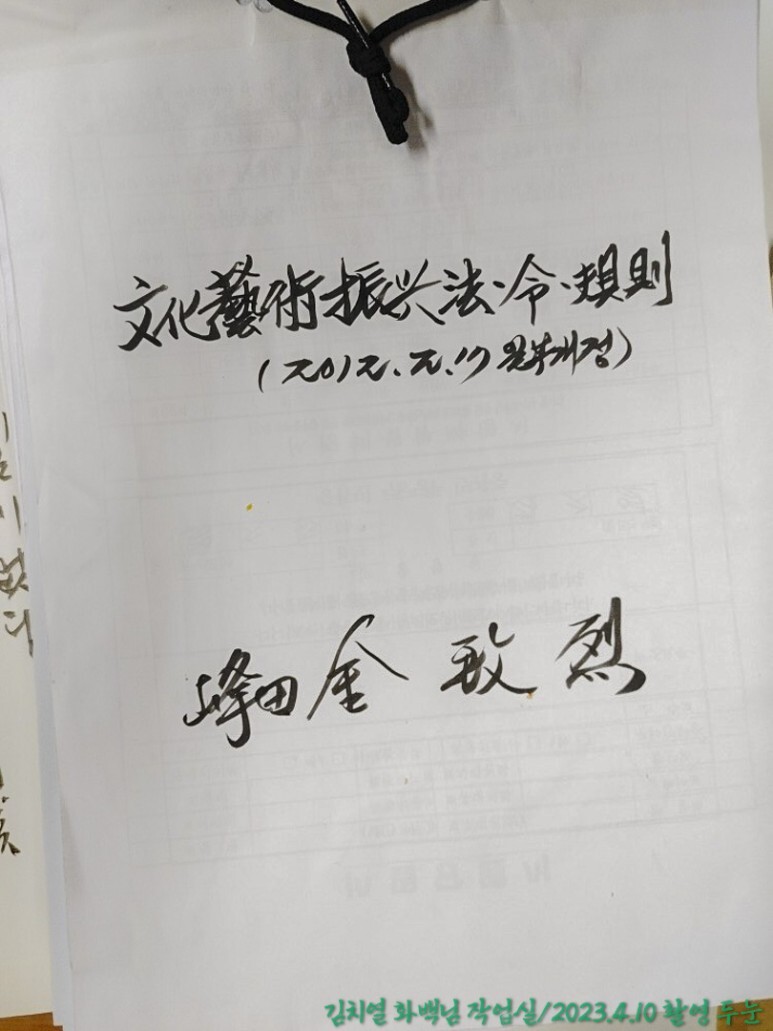 文化藝術振兴法·令·規則
(2012.2.17 일부개정)
峰田 金 致 烈
김치열 화백님 작업실/2023.4.10 촬영 두눈